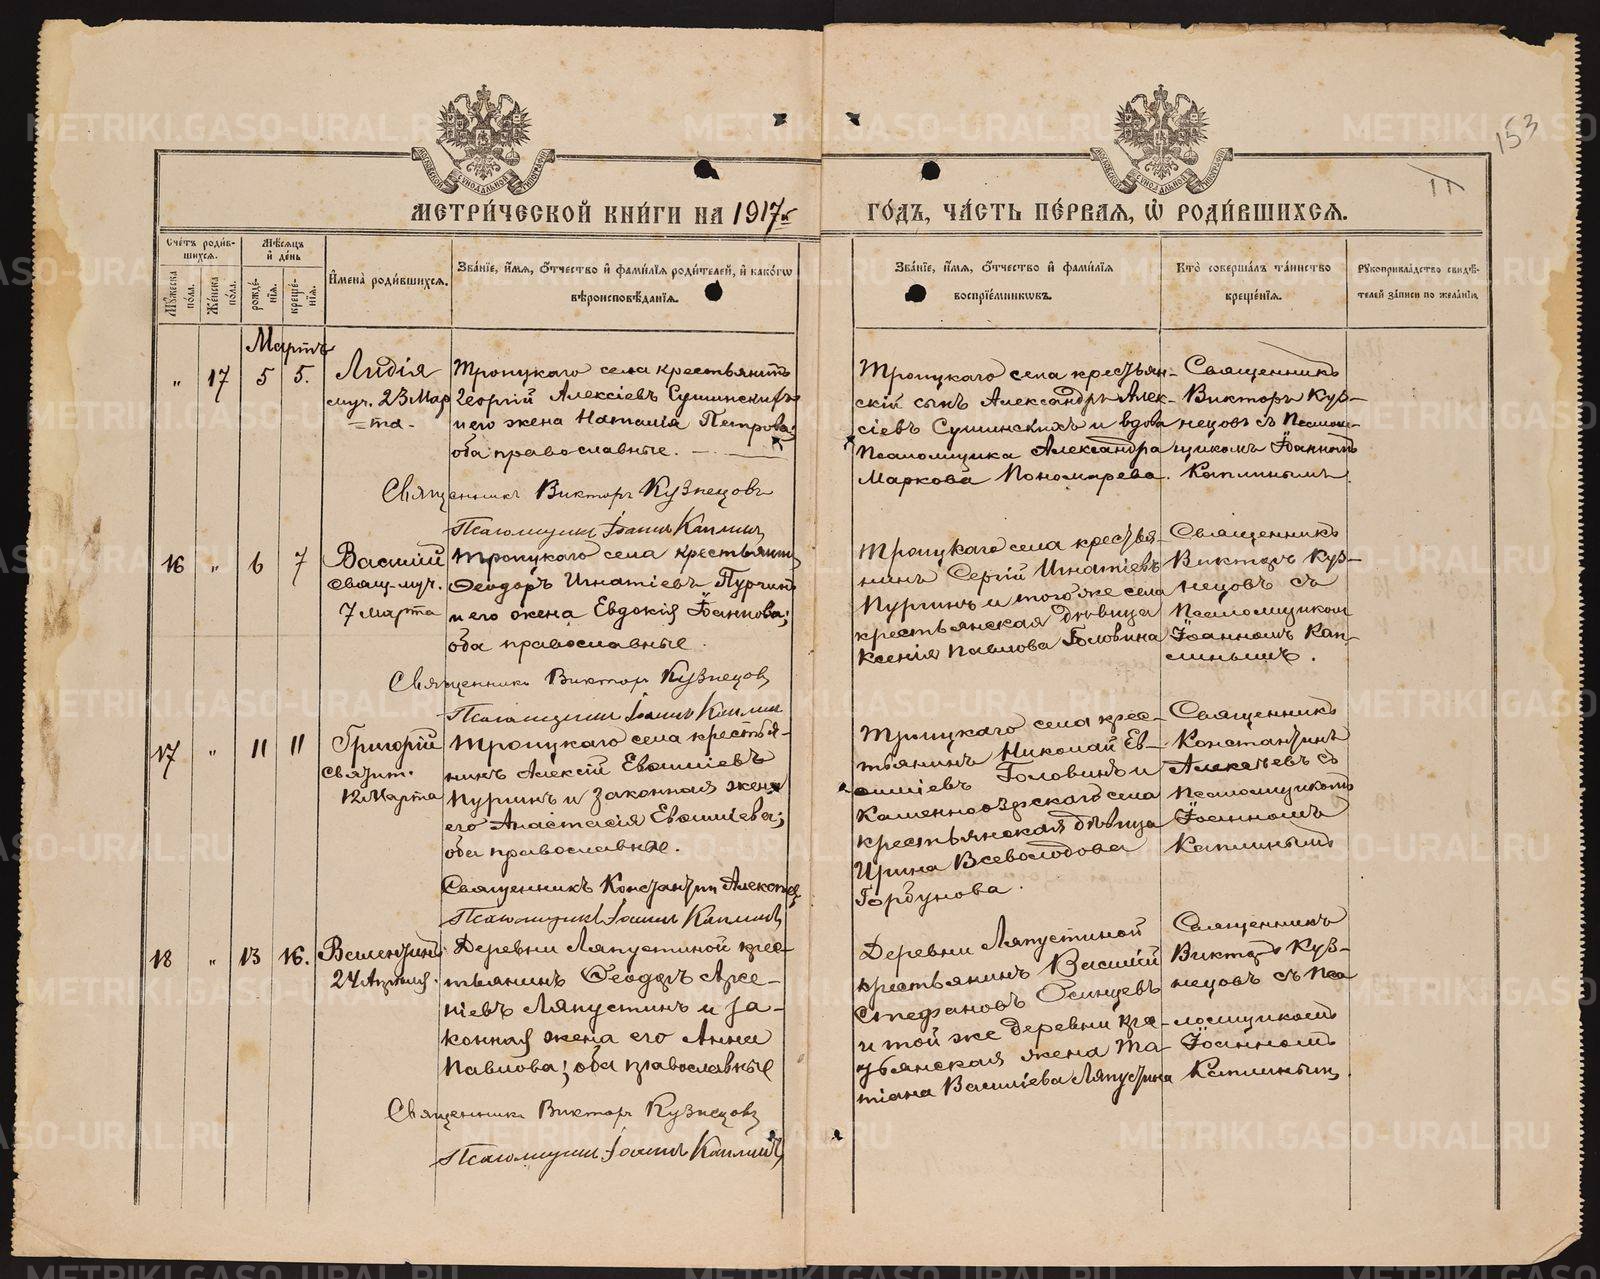 METRIKI.GASO-URAL.RU
153
МОСКОВСКОЙ СѴНОДАЛЬНОЙ ТИПОГРАФІИ
МОСКОВСКОЙ СѴНОДАЛЬНОЙ ТИПОГРАФІИ
МЕТРИ́ЧЕСКОЙ КНИ́ГИ НА 1917 г
ГО́ДЪ, ЧА́СТЬ ПЕ́РВАЯ, Ѡ҆ РОДИ́ВШИХСЯ.
Сче́тъ роди́в-
шихся.
Мѣ́сяцъ
и҆ де́нь
Мꙋ́жеска по́ла.
Же́нска по́ла.
рожде́-
нїя.
креще́-
нїя.
И҆мена̀ роди́вшихся.
Зва́нїе, и҆́мя, ѻ҆́тчество и҆ фами́лїя роди́телей, и҆ како́гѡ
вѣроисповѣ́данїя.
Зва́нїе, и҆́мя, ѻ҆́тчество и҆ фами́лїя
воспрїе́мникѡвъ.
Кто̀ соверша́лъ та́инство
креще́нїя.
Рꙋкоприкла́дство свидѣ́-
телей за́писи по жела́нїю.
Мартъ
„ 17 5 5.
Лидія
муч. 23 Мар
та.
Троицкаго села крестьянинъ
Георгій Алексіевъ Сушинскихъ
и его жена Наталія Петрова;
оба православные.
Священникъ Викторъ Кузнецовъ
Псаломщикъ Іоаннъ Каплинъ
Троицкаго села крестьян-
скій сынъ Александръ Алек-
сіевъ Сушинскихъ и вдова
Псаломщика Александра
Маркова Пономарева.
Священникъ
Викторъ Куз-
нецовъ съ Псалом-
щикомъ Іоанномъ
Каплинымъ.
16 „ 6 7
Василій
свящ-муч.
7 Марта
Троицкаго села крестьянинъ
Ѳеодоръ Игнатіевъ Пургинъ
и его жена Евдокія Іоаннова;
оба православные.
Священникъ Викторъ Кузнецовъ
Псаломщикъ Іоаннъ Каплинъ
Троицкаго села крестья-
нинъ Сергій Игнатіевъ
Пургинъ и того же села
крестьянская дѣвица
Ксенія Павлова Головина
Священникъ
Викторъ Куз-
нецовъ съ
Псаломщиком
Іоанномъ Кап-
линымъ.
17 „ 11 11
Григорій
Святит.
12 Марта
Троицкаго села крестья-
нинъ Алексій Евѳиміевъ
Пургинъ и законная жена
его Анастасія Евѳиміева;
оба православные.
Священникъ Константинъ Алексѣев
Псаломщикъ Іоаннъ Каплинъ
Троицкаго села крес-
тьянинъ Николай Ев-
ѳиміевъ Головинъ и
Каменноозерскаго села
крестьянская дѣвица
Ирина Всеволодова
Горбунова.
Священникъ
Константинъ
Алексѣевъ съ
Псаломщикомъ
Іоанномъ
Каплинымъ
18 „ 13 16.
Валентинъ
24 Апрѣля.
Деревни Ляпустиной крес-
тьянинъ Ѳеодоръ Арсе-
ніевъ Ляпустинъ и за-
конная жена его Анна
Павлова; оба православные
Священникъ Викторъ Кузнецовъ
Псаломщикъ Іоаннъ Каплинъ
Деревни Ляпустиной
крестьянинъ Василій
Стефановъ Осинцевъ
и той же деревни кре-
стьянская жена Та-
тіана Василіева Ляпустина
Священникъ
Викторъ Куз-
нецовъ съ Пса-
ломщикомъ
Іоанномъ
Каплинымъ.